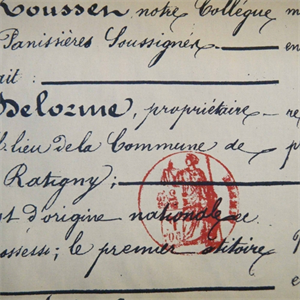 Rousset, notre Collègue
Panissières Soussignés
ait :
Delorme, propriétaire
lieu de la Commune de
Ratigny ;
st d'origine nationale
ssessi ; le premier